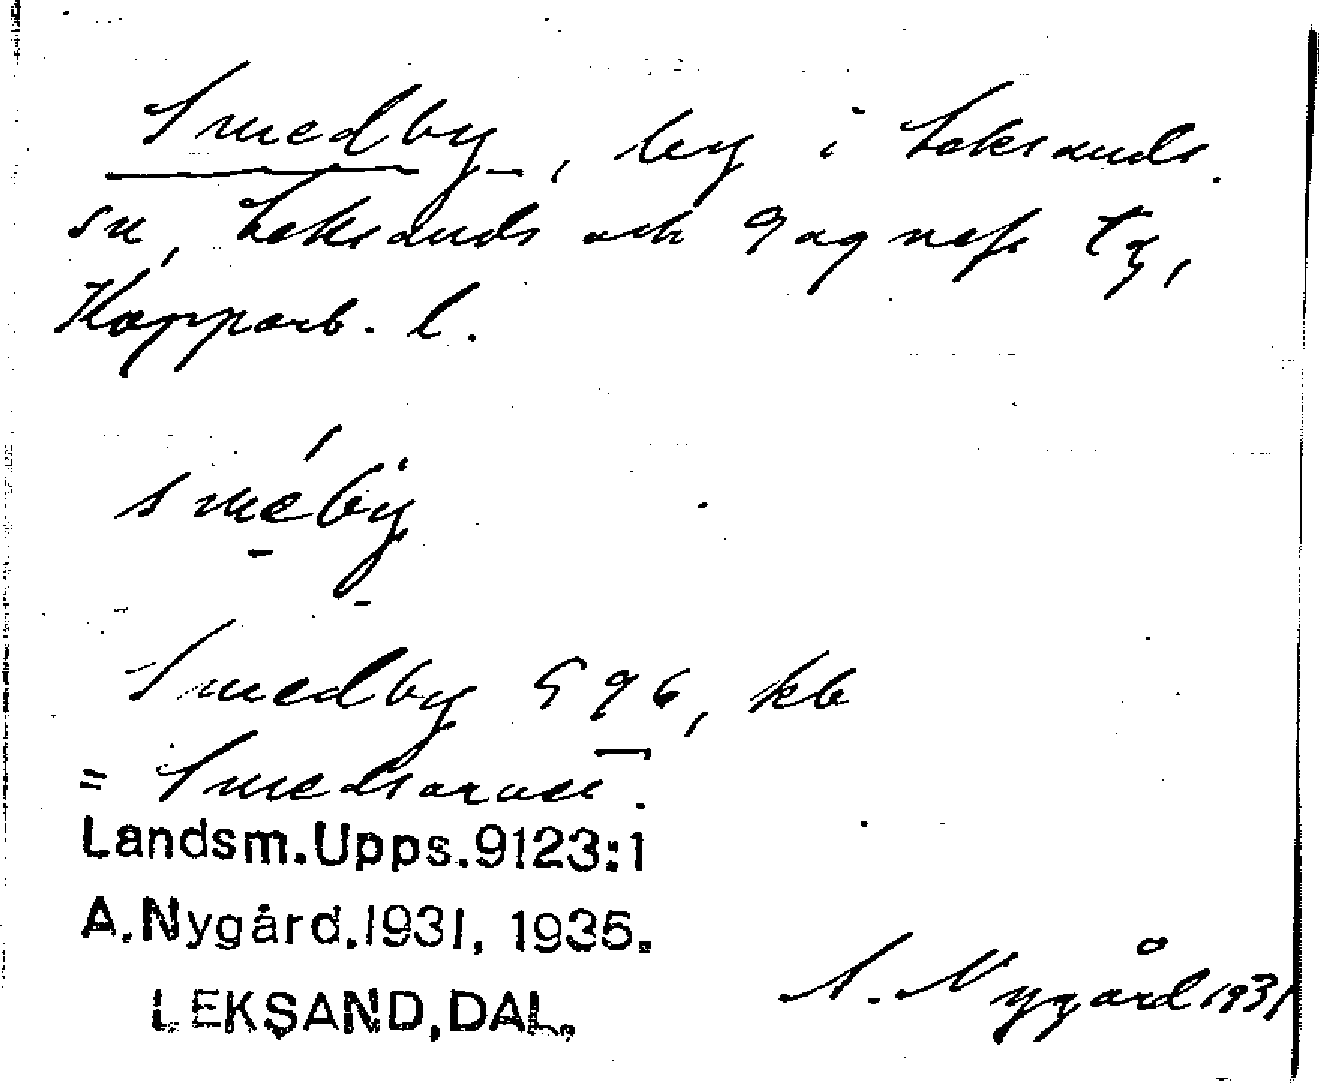 Smedby, by i Leksands
sn, Leksands och Gagnefs tg,
Kopparb. l.
sméby
Smedby 596, kb
= Smedsarvet.
Landsm.Upps.9123:1
A.Nygård.1931, 1935.
LEKSAND,DAL.
A. Nygård 1931